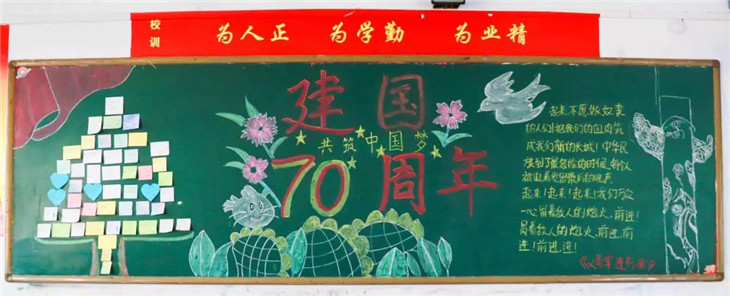 校训
为人正 为学勤 为业精
建国
共筑中国梦
70周年
起来不愿做奴隶
的人们!把我们的血肉筑
成我们新的长城!中华民
族到了最危险的时候,每个人
被迫着发出最后的吼声
起来!起来!起来!我们万众
一心冒着敌人的炮火,前进!
冒着敌人的炮火,前进,前
进!前进,进!
《义勇军进行曲》